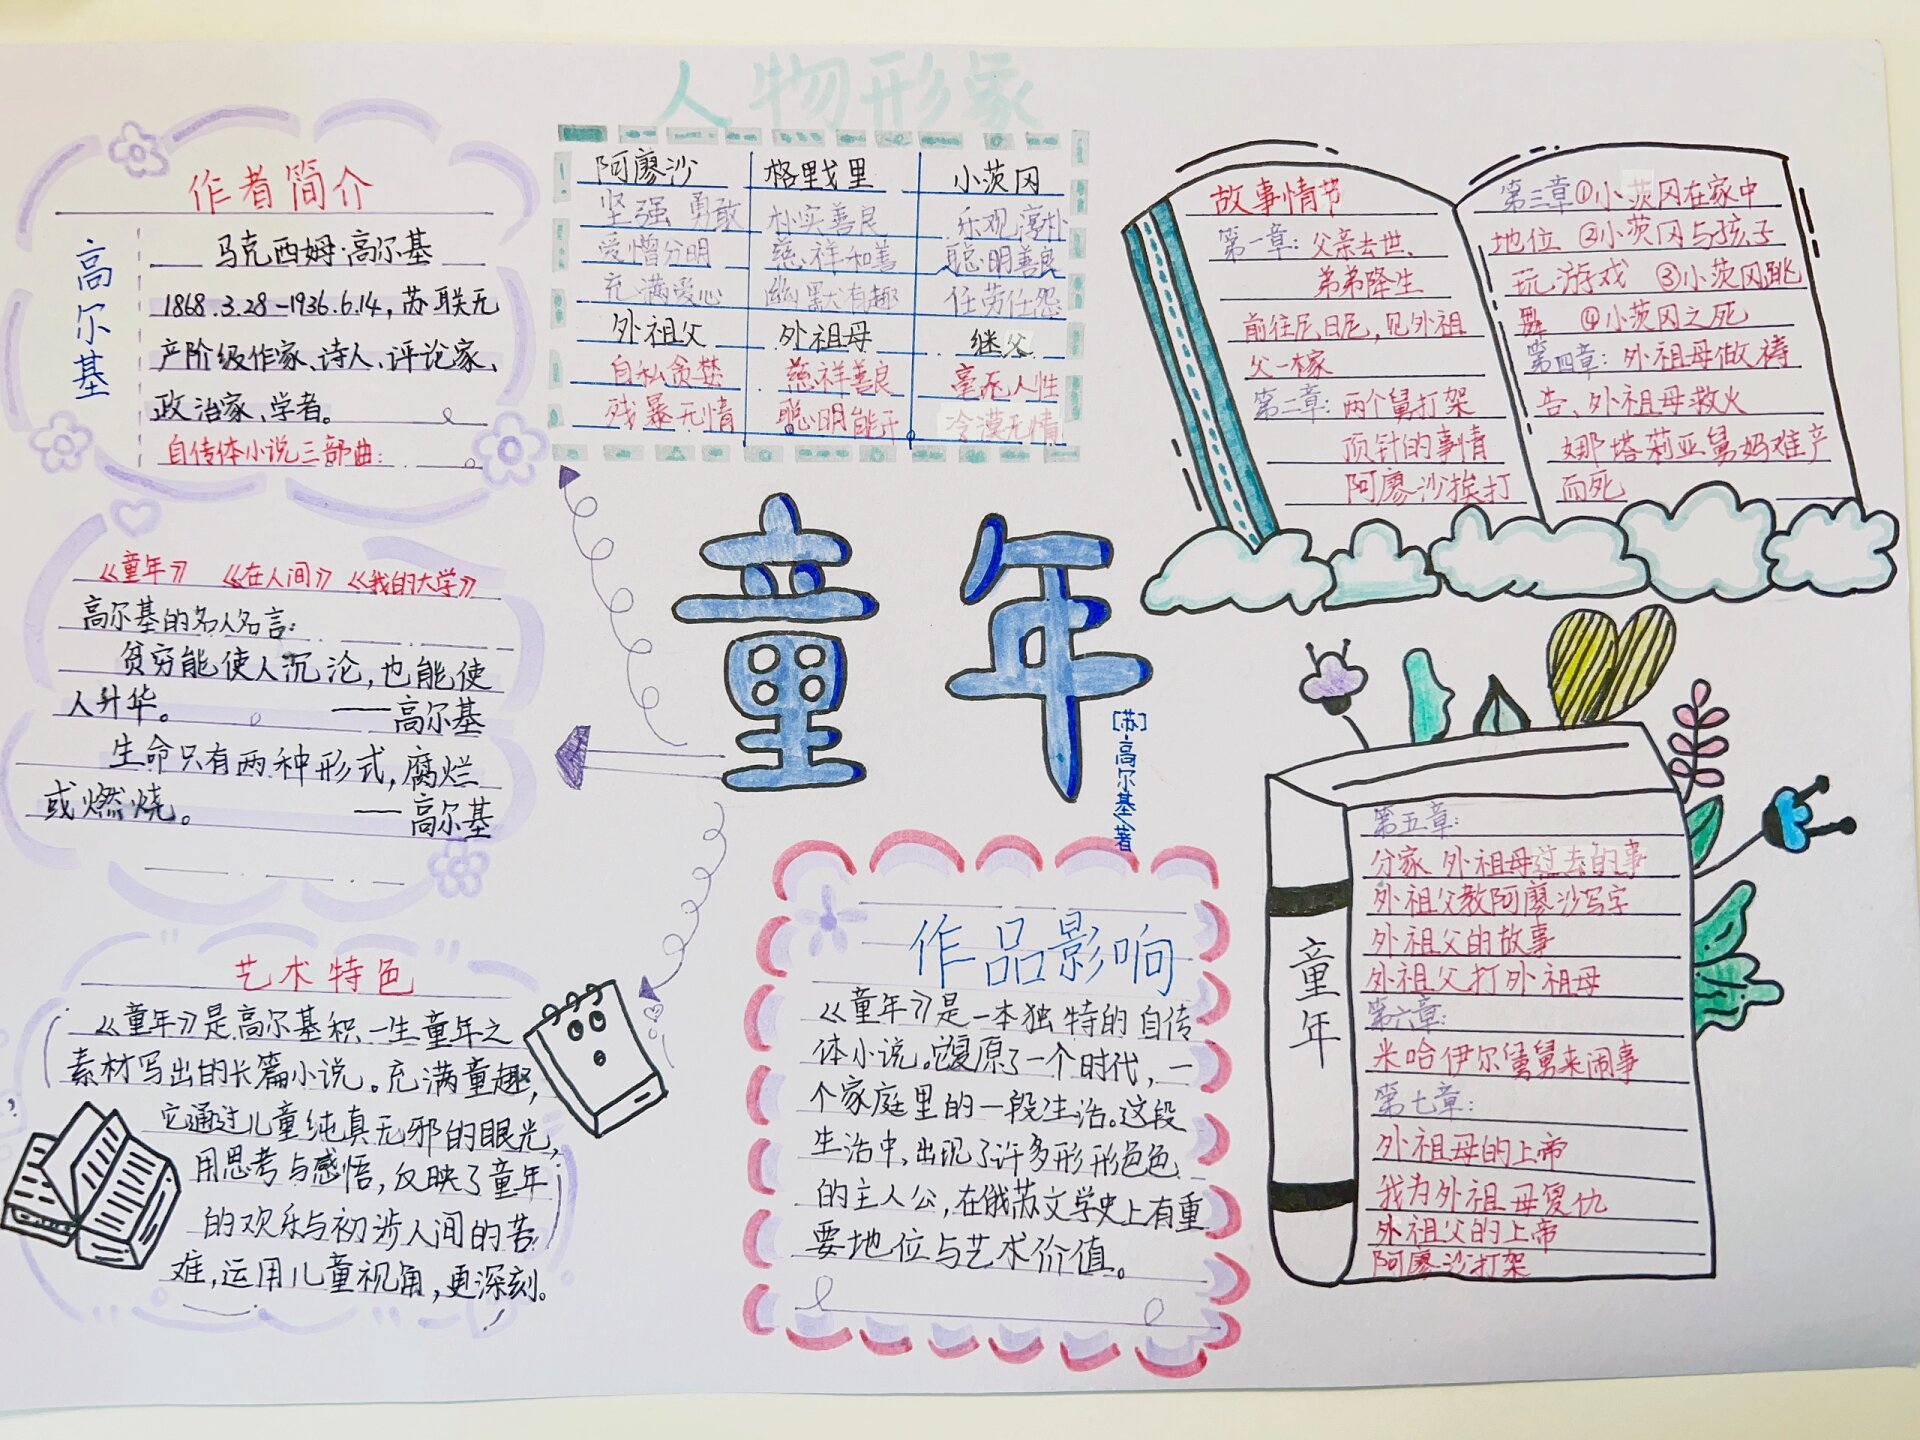 人物形象
作者简介
高尔基
马克西姆·高尔基
1868.3.28-1936.6.14,苏联无
产阶级作家、诗人、评论家、
政治家、学者。
自传体小说三部曲:
《童年》 《在人间》 《我的大学》
高尔基的名人名言:
贫穷能使人沉沦,也能使
人升华。 ——高尔基
生命只有两种形式,腐烂
或燃烧。 ——高尔基
艺术特色
《童年》是高尔基积一生童年之
素材写出的长篇小说。充满童趣,
它通过儿童纯真无邪的眼光,
用思考与感悟,反映了童年
的欢乐与初涉人间的苦
难,运用儿童视角,更深刻。
阿廖沙 格里戈里 小茨冈
坚强 勇敢 朴实善良 乐观淳朴
爱憎分明 慈祥和善 聪明善良
充满爱心 幽默有趣 任劳任怨
外祖父 外祖母 继父
自私贪婪 慈祥善良 毫无人性
残暴无情 聪明能干 冷漠无情
童年
[苏]高尔基/著
作品影响
《童年》是一本独特的自传
体小说。它复原了一个时代,一
个家庭里的一段生活。这段
生活中,出现了许多形形色色
的主人公,在俄苏文学史上有重
要地位与艺术价值。
故事情节
第一章:父亲去世、
弟弟降生
前往尼日尼,见外祖
父一家
第二章:两个舅打架
顶针的事情
阿廖沙挨打
第三章①小茨冈在家中
地位 ②小茨冈与孩子
玩游戏 ③小茨冈跳
舞 ④小茨冈之死
第四章:外祖母做祷
告、外祖母救火
娜塔莉亚舅妈难产
而死
童年
第五章:
分家 外祖母过去的事
外祖父教阿廖沙写字
外祖父的故事
外祖父打外祖母
第六章:
米哈伊尔舅舅来闹事
第七章:
外祖母的上帝
我为外祖母复仇
外祖父的上帝
阿廖沙打架